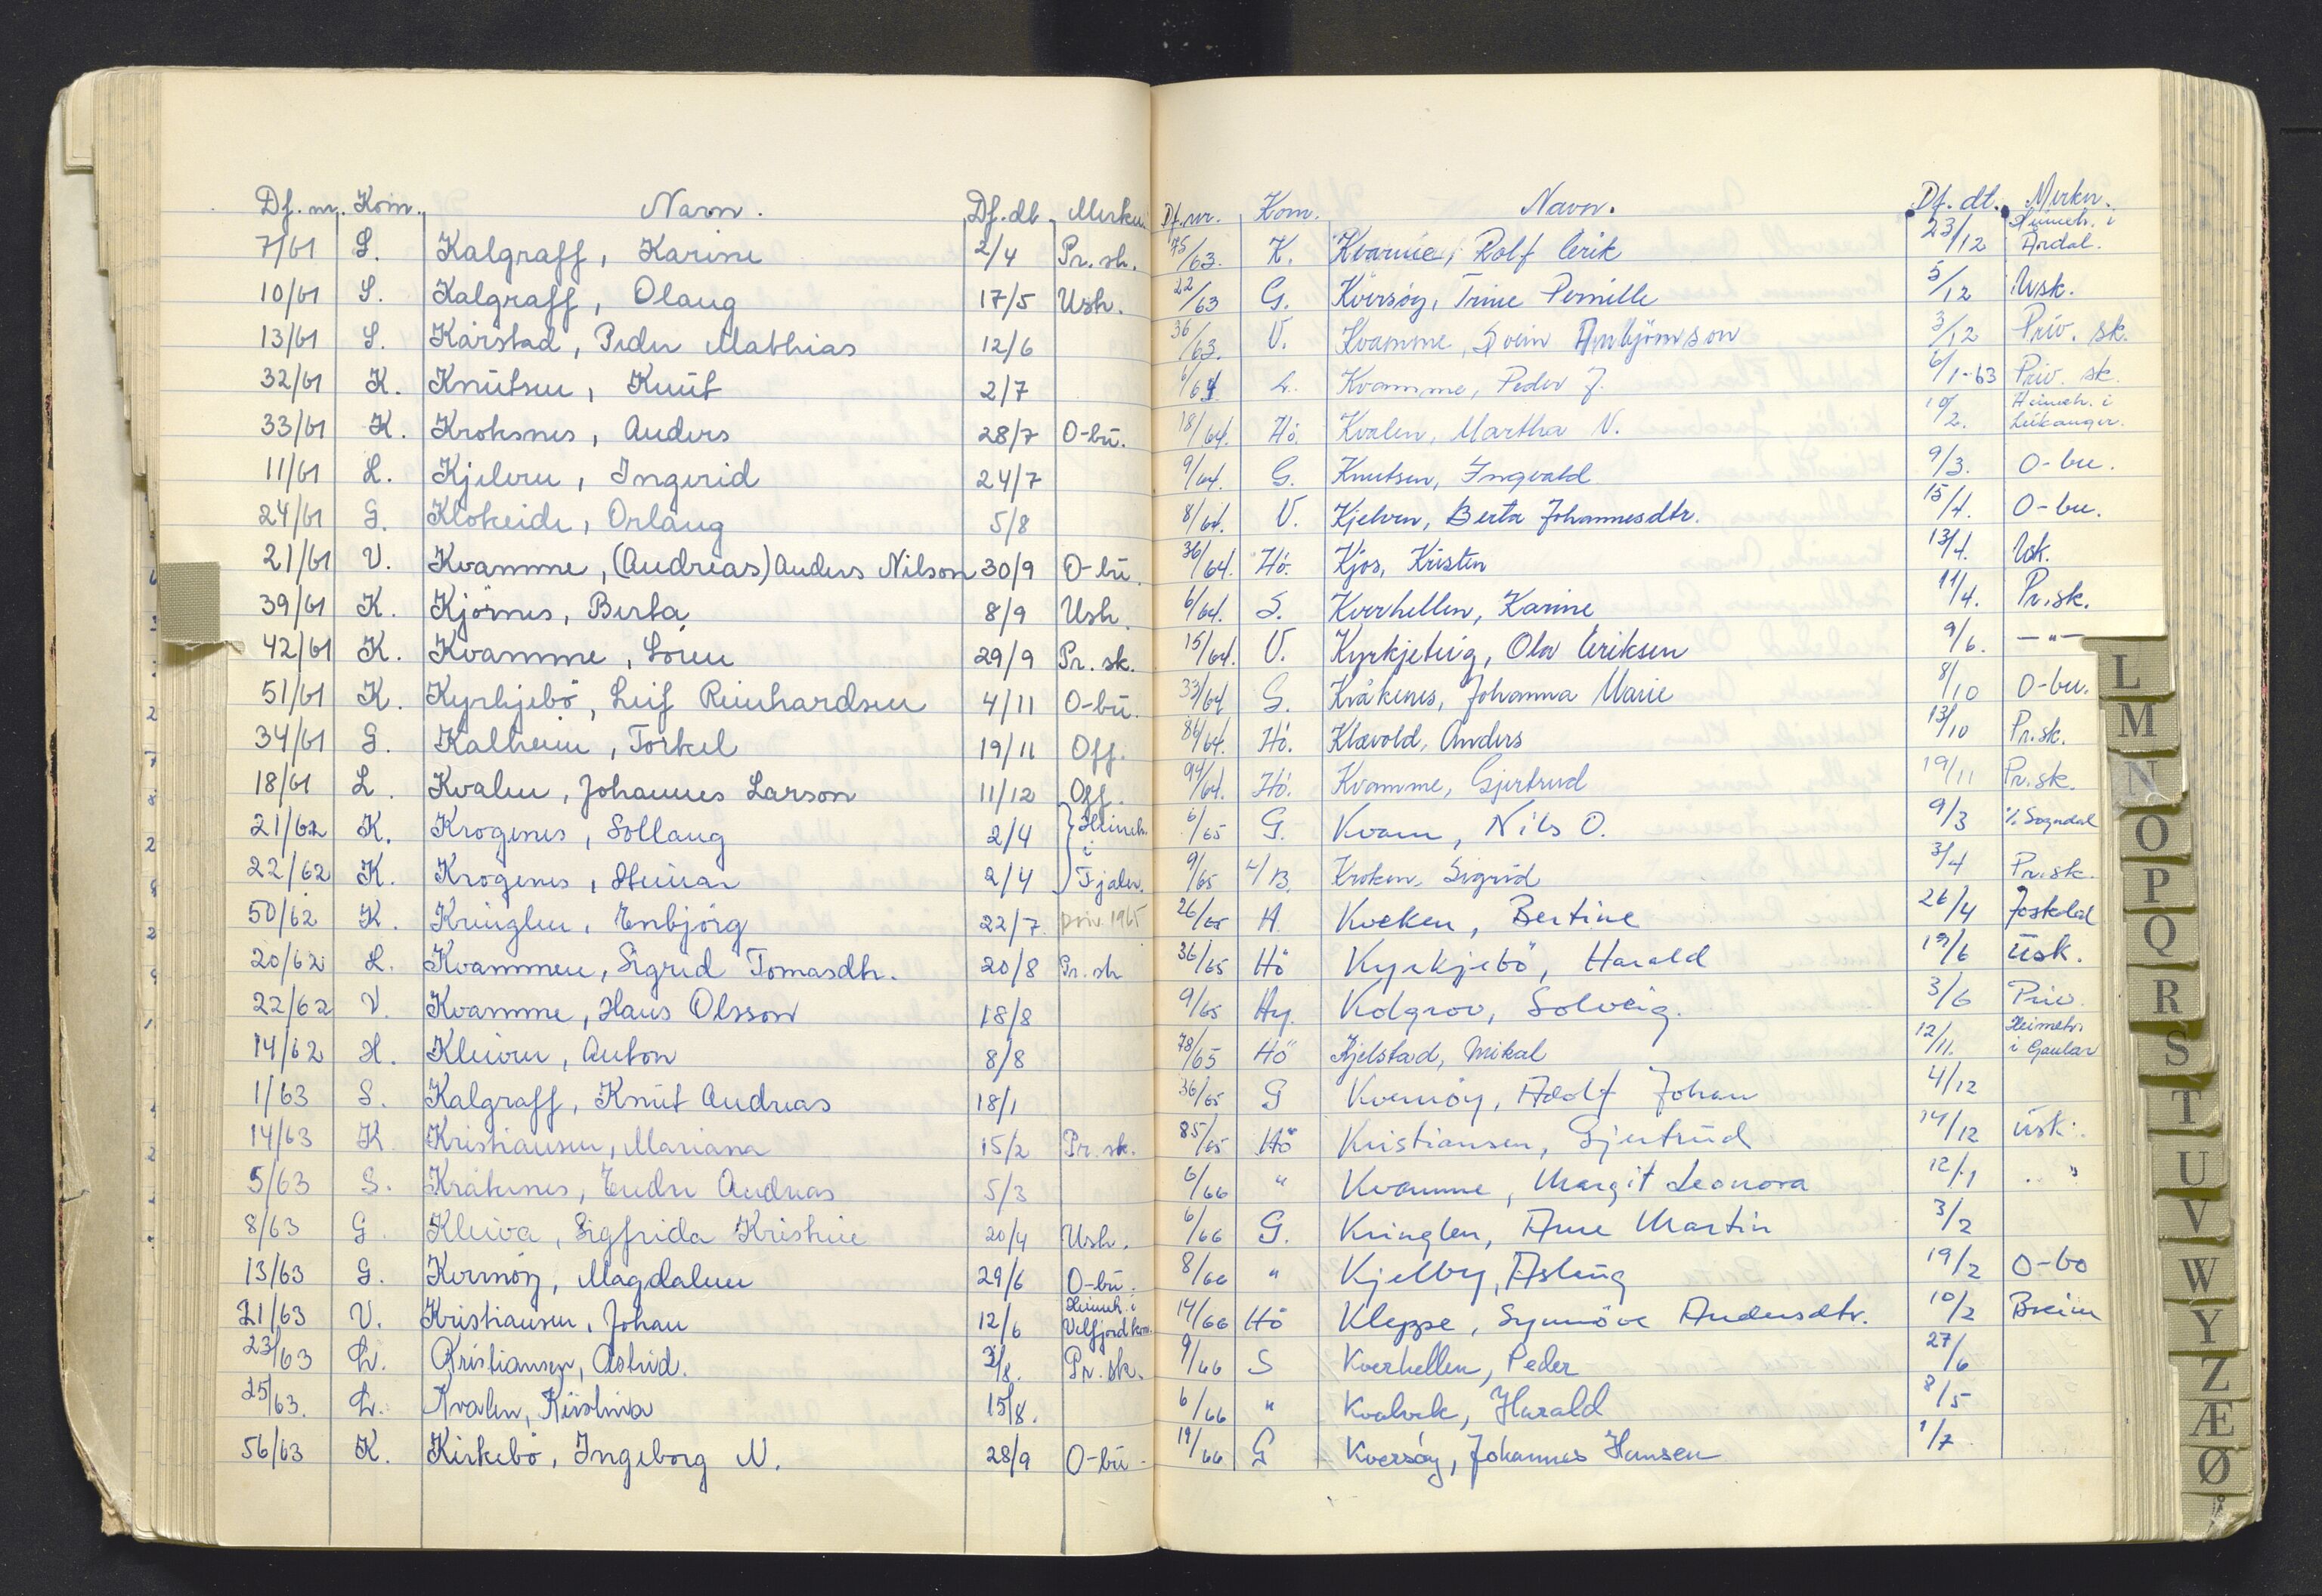 Df. nr. Kom. Navn. Df. dt. Merkn.
7/61 S. Kalgraff, Karine 2/4 Pr. sk.
10/61 S. Kalgraff, Olaug 17/5 Usk.
13/61 S. Kårstad, Peder Mathias 12/6
32/61 K. Knutsen, Knut 2/7
33/61 K. Kroksnes, Anders 28/7 O-bu.
11/61 L. Kjelven, Ingerid 24/7
24/61 G. Klokeide, Orlaug 5/8
21/61 V. Kvamme, (Andreas) Anders Nilson 30/9 O-bu.
39/61 K. Kjörnes, Berta 8/9 Usk.
42/61 K. Kvamme, Sören 29/9 Pr. sk.
51/61 K. Kyrkjebö, Leif Reinhardsen 4/11 O-bu.
34/61 G. Kalheim, Torkel 19/11 Off.
18/61 L. Kvalen, Johannes Larson 11/12 Off.
21/62 K. Krogenes, Sollaug 2/4 Heimeh. i
22/62 K. Krogenes, Steinar 2/4 Fjaler.
50/62 K. Kringlen, Enbjörg 22/7 priv. 1965
20/62 L. Kvammen, Sigrid Tomasdtr. 20/8 Pr. sk
22/62 V. Kvamme, Hans Olsson 18/8
14/62 H. Kleiven, Anton 8/8
1/63 S. Kalgraff, Knut Andreas 18/1
14/63 K. Kristiansen, Mariana 15/2 Pr. sk.
5/63 S. Kråkenes, Endre Andreas 5/3
8/63 G. Kleiva, Sigfrida Kristine 20/4 Usk.
13/63 G. Kvernöy, Magdalene 29/6 O-bu.
21/63 V. Kristiansen, Johan 12/6 Heimeh. i Velfjord kom.
23/63 L. Kristiansen, Astrid. 3/8. Pr. sk.
25/63. L. Kvalen, Kristina 15/8.
56/63 K. Kirkebö, Ingeborg N. 28/9 O-bu.
Df. nr. Kom. Navn. Df. dt. Merkn.
75/63. K. Kvamme, Rolf Erik 23/12 Heimeh. i Årdal.
22/63 G. Kversöy, Trine Pernille 5/12 Usk.
36/63. V. Kvamme, Svein Anbjörnson 3/12 Priv. sk.
6/64 L. Kvamme, Peder J. 6/1-63 Priv. sk.
18/64. Hö. Kvalen, Martha N. 10/2. Heimeh. i Leikanger.
9/64. G. Knutsen, Ingvald 9/3. O-bu.
8/64. V. Kjelven, Berta Johannesdtr. 15/4. O-bu.
36/64. Hö. Kjos, Kristen 13/4. Usk.
6/64. S. Kverhellen, Karine 11/4. Pr. sk.
15/64. V. Kyrkjeteig, Ola Eriksen 9/6. —"—
33/64 G. Kråkenes, Johanna Marie 8/10 O-bu.
86/64. Hö. Klævold, Anders 13/10 Pr. sk.
94/64. Hö. Kvamme, Gjertrud 19/11 Pr. sk.
6/65 G. Kvam, Nils O. 9/3 % Sogndal
9/65 L/B. Kroken, Sigrid 3/4 Pr. sk.
26/65 A. Kveken, Bertine 26/4 Jostedal
36/65 Hö Kyrkjebö, Harald 19/6 Usk.
9/65 Hy. Kolgrov, Solveig. 3/6 Priv.
78/65 Hö Kjelstad, Mikal 12/11. Heimeh. i Gaular
36/65 G Kvernöy, Adolf Johan 4/12
85/65 Hö Kristiansen, Gjertrud 14/12 Usk.
6/66 " Kvamme, Margit Leonora 12/1 "
6/66 G. Kringlen, Arne Martin 3/2
8/66 " Kjelby, Aslaug 19/2 O-bo
14/66 Hö Kleppe, Synnöve Andersdtr. 10/2 Breim
9/66 S Kverhellen, Peder 27/6
6/66 " Kvalvik, Harald 8/5
19/66 G Kversöy, Johannes Hansen 1/7
L
M
N
O
P
Q
R
S
T
U
V
W
Y
Z
Æ
Ø